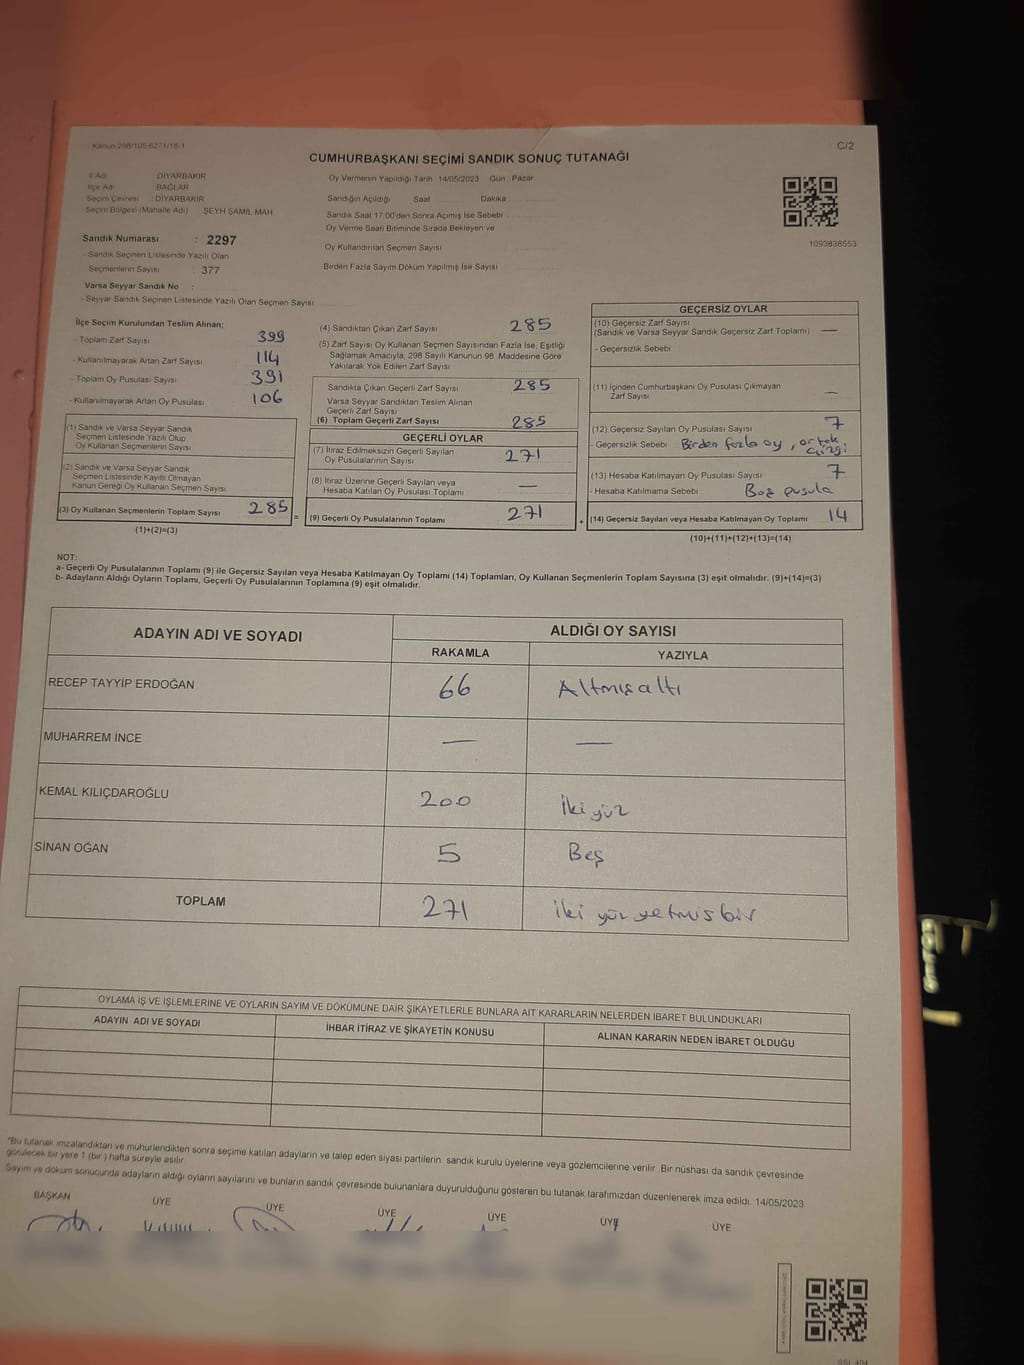 Kanun 298/105-6271/18.1
C/2
CUMHURBAŞKANI SEÇİMİ SANDIK SONUÇ TUTANAĞI
İl Adı : DİYARBAKIR
İlçe Adı : BAĞLAR
Seçim Çevresi : DİYARBAKIR
Seçim Bölgesi (Mahalle Adı) ŞEYH ŞAMİL MAH
Sandık Numarası : 2297
- Sandık Seçmen Listesinde Yazılı Olan
Seçmenlerin Sayısı : 377
Varsa Seyyar Sandık No :
- Seyyar Sandık Seçmen Listesinde Yazılı Olan Seçmen Sayısı
Oy Vermenin Yapıldığı Tarih 14/05/2023 Gün : Pazar
Sandığın Açıldığı Saat Dakika
Sandık Saat 17:00'den Sonra Açımış İse Sebebi
Oy Verme Saati Bitiminde Sırada Bekleyen ve
Oy Kullandırılan Seçmen Sayısı
Birden Fazla Sayım Döküm Yapılmış İse Sayısı
1093838553
İlçe Seçim Kurulundan Teslim Alınan;
- Toplam Zarf Sayısı 399
- Kullanılmayarak Artan Zarf Sayısı 114
- Toplam Oy Pusulası Sayısı 391
- Kullanılmayarak Artan Oy Pusulası 106
(1) Sandık ve Varsa Seyyar Sandık
Seçmen Listesinde Yazılı Olup
Oy Kullanan Seçmenlerin Sayısı
(2) Sandık ve Varsa Seyyar Sandık
Seçmen Listesinde Kayıtlı Olmayan
Kanun Gereği Oy Kullanan Seçmen Sayısı
(3) Oy Kullanan Seçmenlerin Toplam Sayısı 285
(1)+(2)=(3)
(4) Sandıktan Çıkan Zarf Sayısı 285
(5) Zarf Sayısı Oy Kullanan Seçmen Sayısından Fazla İse, Eşitliği
Sağlamak Amacıyla, 298 Sayılı Kanunun 98. Maddesine Göre
Yakılarak Yok Edilen Zarf Sayısı
Sandıkta Çıkan Geçerli Zarf Sayısı 285
Varsa Seyyar Sandıktan Teslim Alınan
Geçerli Zarf Sayısı
(6) Toplam Geçerli Zarf Sayısı 285
GEÇERLİ OYLAR
(7) İtiraz Edilmeksizin Geçerli Sayılan
Oy Pusulalarının Sayısı 271
(8) İtiraz Üzerine Geçerli Sayılan veya
Hesaba Katılan Oy Pusulası Toplamı —
= (9) Geçerli Oy Pusulalarının Toplamı 271
GEÇERSİZ OYLAR
(10) Geçersiz Zarf Sayısı
(Sandık ve Varsa Seyyar Sandık Geçersiz Zarf Toplamı) —
- Geçersizlik Sebebi
(11) İçinden Cumhurbaşkanı Oy Pusulası Çıkmayan
Zarf Sayısı —
(12) Geçersiz Sayılan Oy Pusulası Sayısı 7
- Geçersizlik Sebebi Birden fazla oy, ortak
çizgi
(13) Hesaba Katılmayan Oy Pusulası Sayısı 7
- Hesaba Katılmama Sebebi Boş pusula
+ (14) Geçersiz Sayılan veya Hesaba Katılmayan Oy Toplamı 14
(10)+(11)+(12)+(13)=(14)
NOT:
a- Geçerli Oy Pusulalarının Toplamı (9) ile Geçersiz Sayılan veya Hesaba Katılmayan Oy Toplamı (14) Toplamları, Oy Kullanan Seçmenlerin Toplam Sayısına (3) eşit olmalıdır. (9)+(14)=(3)
b- Adayların Aldığı Oyların Toplamı, Geçerli Oy Pusulalarının Toplamına (9) eşit olmalıdır.
ADAYIN ADI VE SOYADI
ALDIĞI OY SAYISI
RAKAMLA YAZIYLA
RECEP TAYYİP ERDOĞAN 66 Altmışaltı
MUHARREM İNCE — —
KEMAL KILIÇDAROĞLU 200 İkiyüz
SİNAN OĞAN 5 Beş
TOPLAM 271 İki yüz yetmiş bir
OYLAMA İŞ VE İŞLEMLERİNE VE OYLARIN SAYIM VE DÖKÜMÜNE DAİR ŞİKAYETLERLE BUNLARA AİT KARARLARIN NELERDEN İBARET BULUNDUKLARI
ADAYIN ADI VE SOYADI İHBAR İTİRAZ VE ŞİKAYETİN KONUSU ALINAN KARARIN NEDEN İBARET OLDUĞU
*Bu tutanak imzalandıktan ve mühürlendikten sonra seçime katılan adayların ve talep eden siyasi partilerin sandık kurulu üyelerine veya gözlemcilerine verilir. Bir nüshası da sandık çevresinde
görülecek bir yere 1 (bir) hafta süreyle asılır.
Sayım ve döküm sonucunda adayların aldığı oyların sayılarını ve bunların sandık çevresinde bulunanlara duyurulduğunu gösteren bu tutanak tarafımızdan düzenlenerek imza edildi. 14/05/2023
BAŞKAN ÜYE ÜYE ÜYE ÜYE ÜYE ÜYE